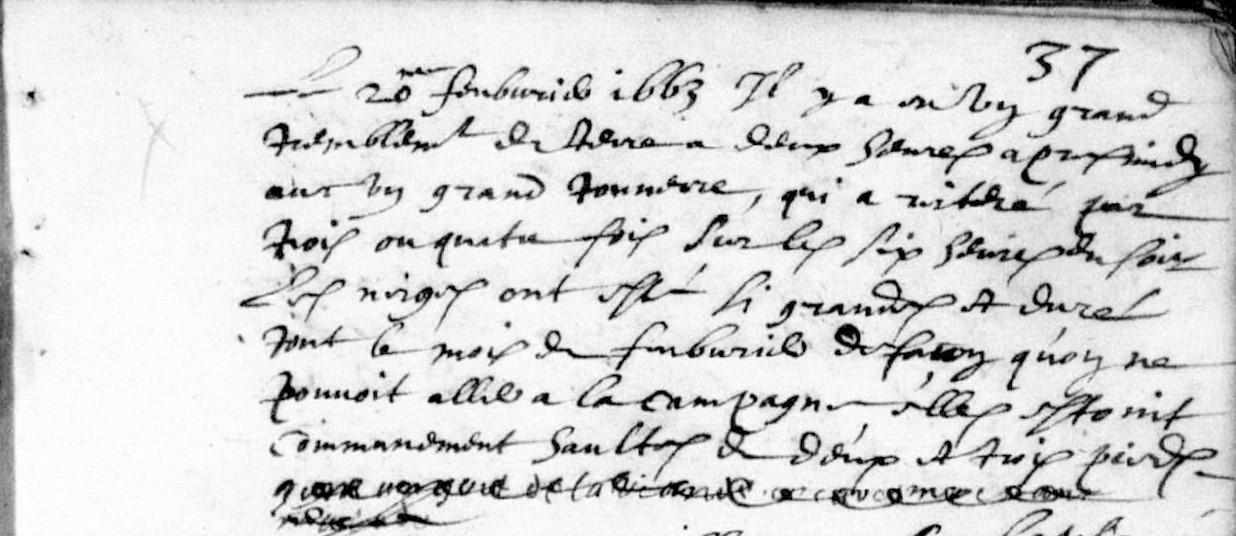 37
Le 20me feubvrier 1663 Il y a eu un grand
tremblemt de terre a deux heures apres midy
avec un grand tonnerre, qui a réitéré par
trois ou quatre fois sur les six heures du soir
Les neiges ont esté si grandes et dure
tout le mois de feubvrier de façon qu'on ne
pouvoit aller a la campagne elles estoint
communement haultes de deux et trois pieds